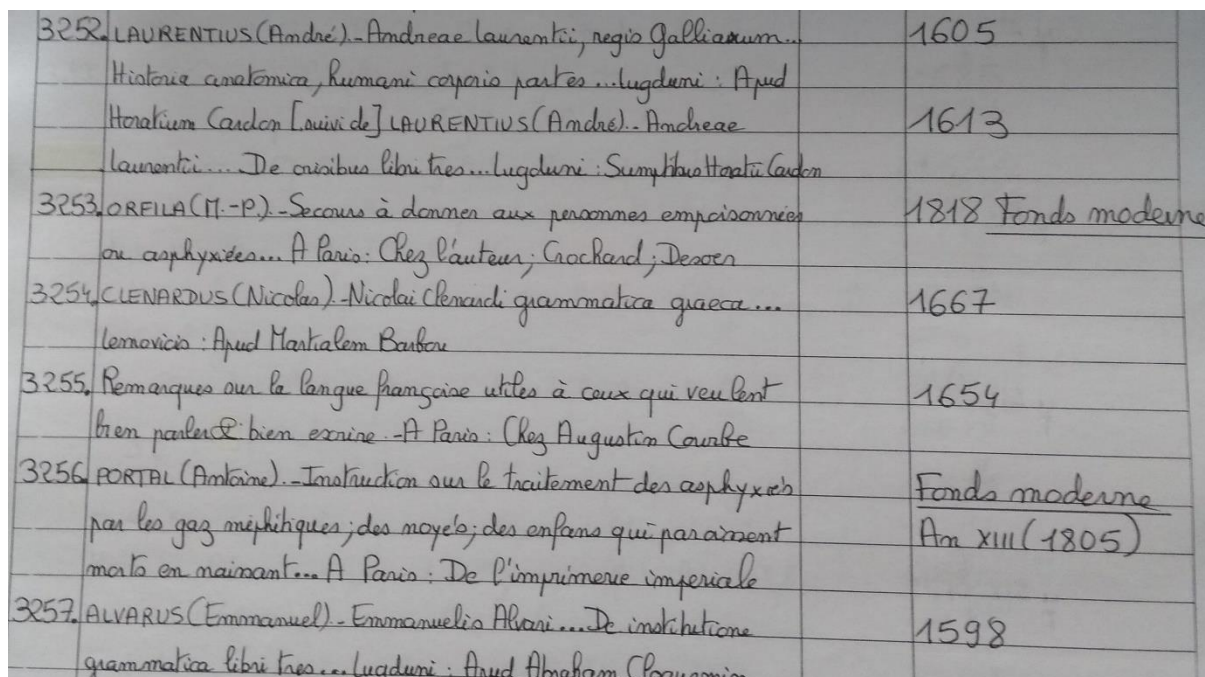 3252. LAURENTIUS (André). - Andreae laurentii, regis Galliarum.. 1605
Historia anatomica, humani corporis partes... lugduni : Apud
Horatium Cardon [suivi de] LAURENTIUS (André). - Andreae 1613
laurentii.... De crisibus libri tres... Lugduni : Sumptibus Horatii Cardon
3253. ORFILA (M.-P.). - Secours à donner aux personnes empoisonnées 1818 Fonds moderne
ou asphyxiées... A Paris : Chez l'auteur ; Crochard ; Desoer
3254. CLENARDUS (Nicolas). - Nicolai Clenardi grammatica graeca... 1667
Lemovicis : Apud Martialem Barbou
3255. Remarques sur la langue françoise utiles à ceux qui veulent 1654
bien parler & bien escrire. - A Paris : Chez Augustin Courbe
3256. PORTAL (Antoine). - Instruction sur le traitement des asphyxiés Fonds moderne
par les gaz méphitiques ; des noyés ; des enfans qui paraissent An XIII (1805)
morts en naissant... A Paris : De l'imprimerie imperiale
3257. ALVARUS (Emmanuel) - Emmanuelis Alvari... De institutione 1598
grammatica libri tres... Lugduni : Apud Abraham